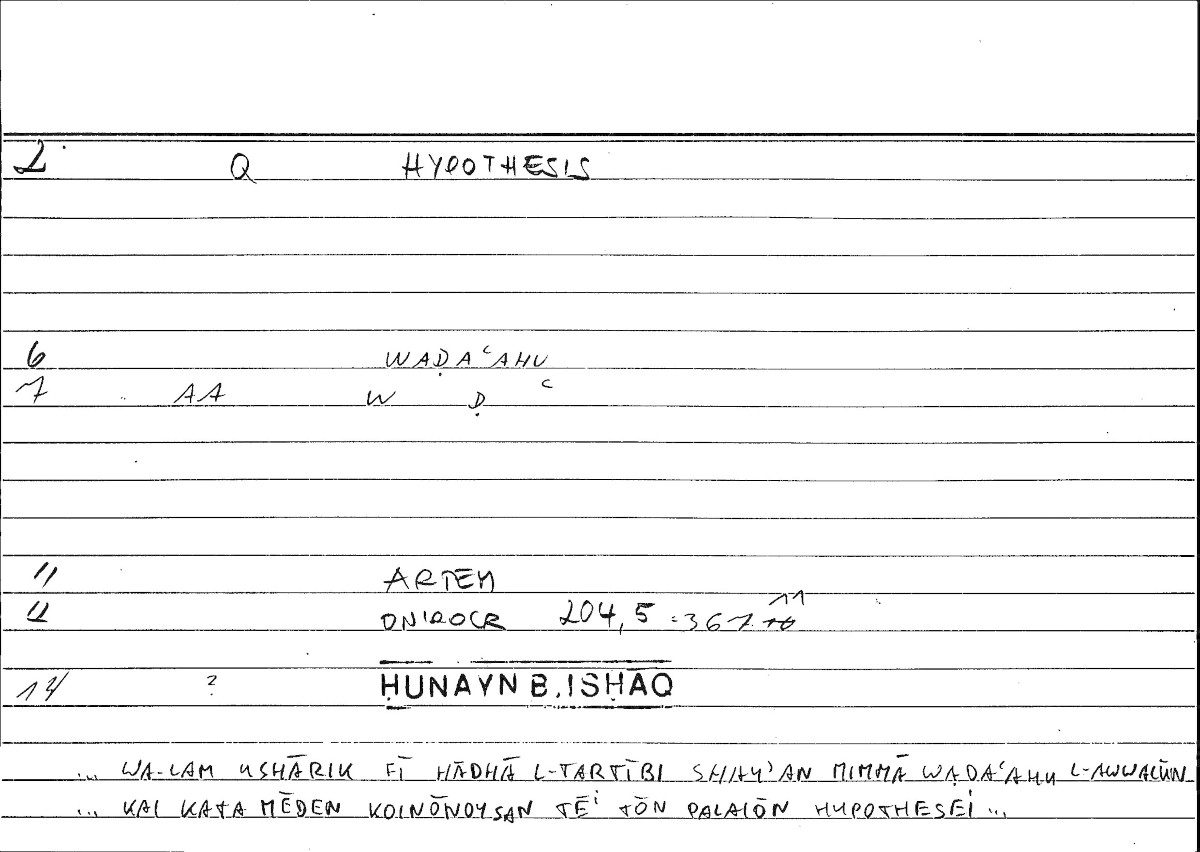 2 Q HYPOTHESIS
6 WAḌAʿAHU
7 AA W Ḍ ʿ
11 ARTEM
12 ONIROCR 204,5 = 367 11
14 ? ḤUNAYN B. ISḤĀQ
... WA-LAM USHĀRIK FĪ HĀDHĀ L-TARTĪBI SHAY'AN MIMMĀ WAḌAʿAHU L-AWWALŪN
... KAI KATA MĒDEN KOINŌNOYSAN TĒI TŌN PALAIŌN HYPOTHESEI ...